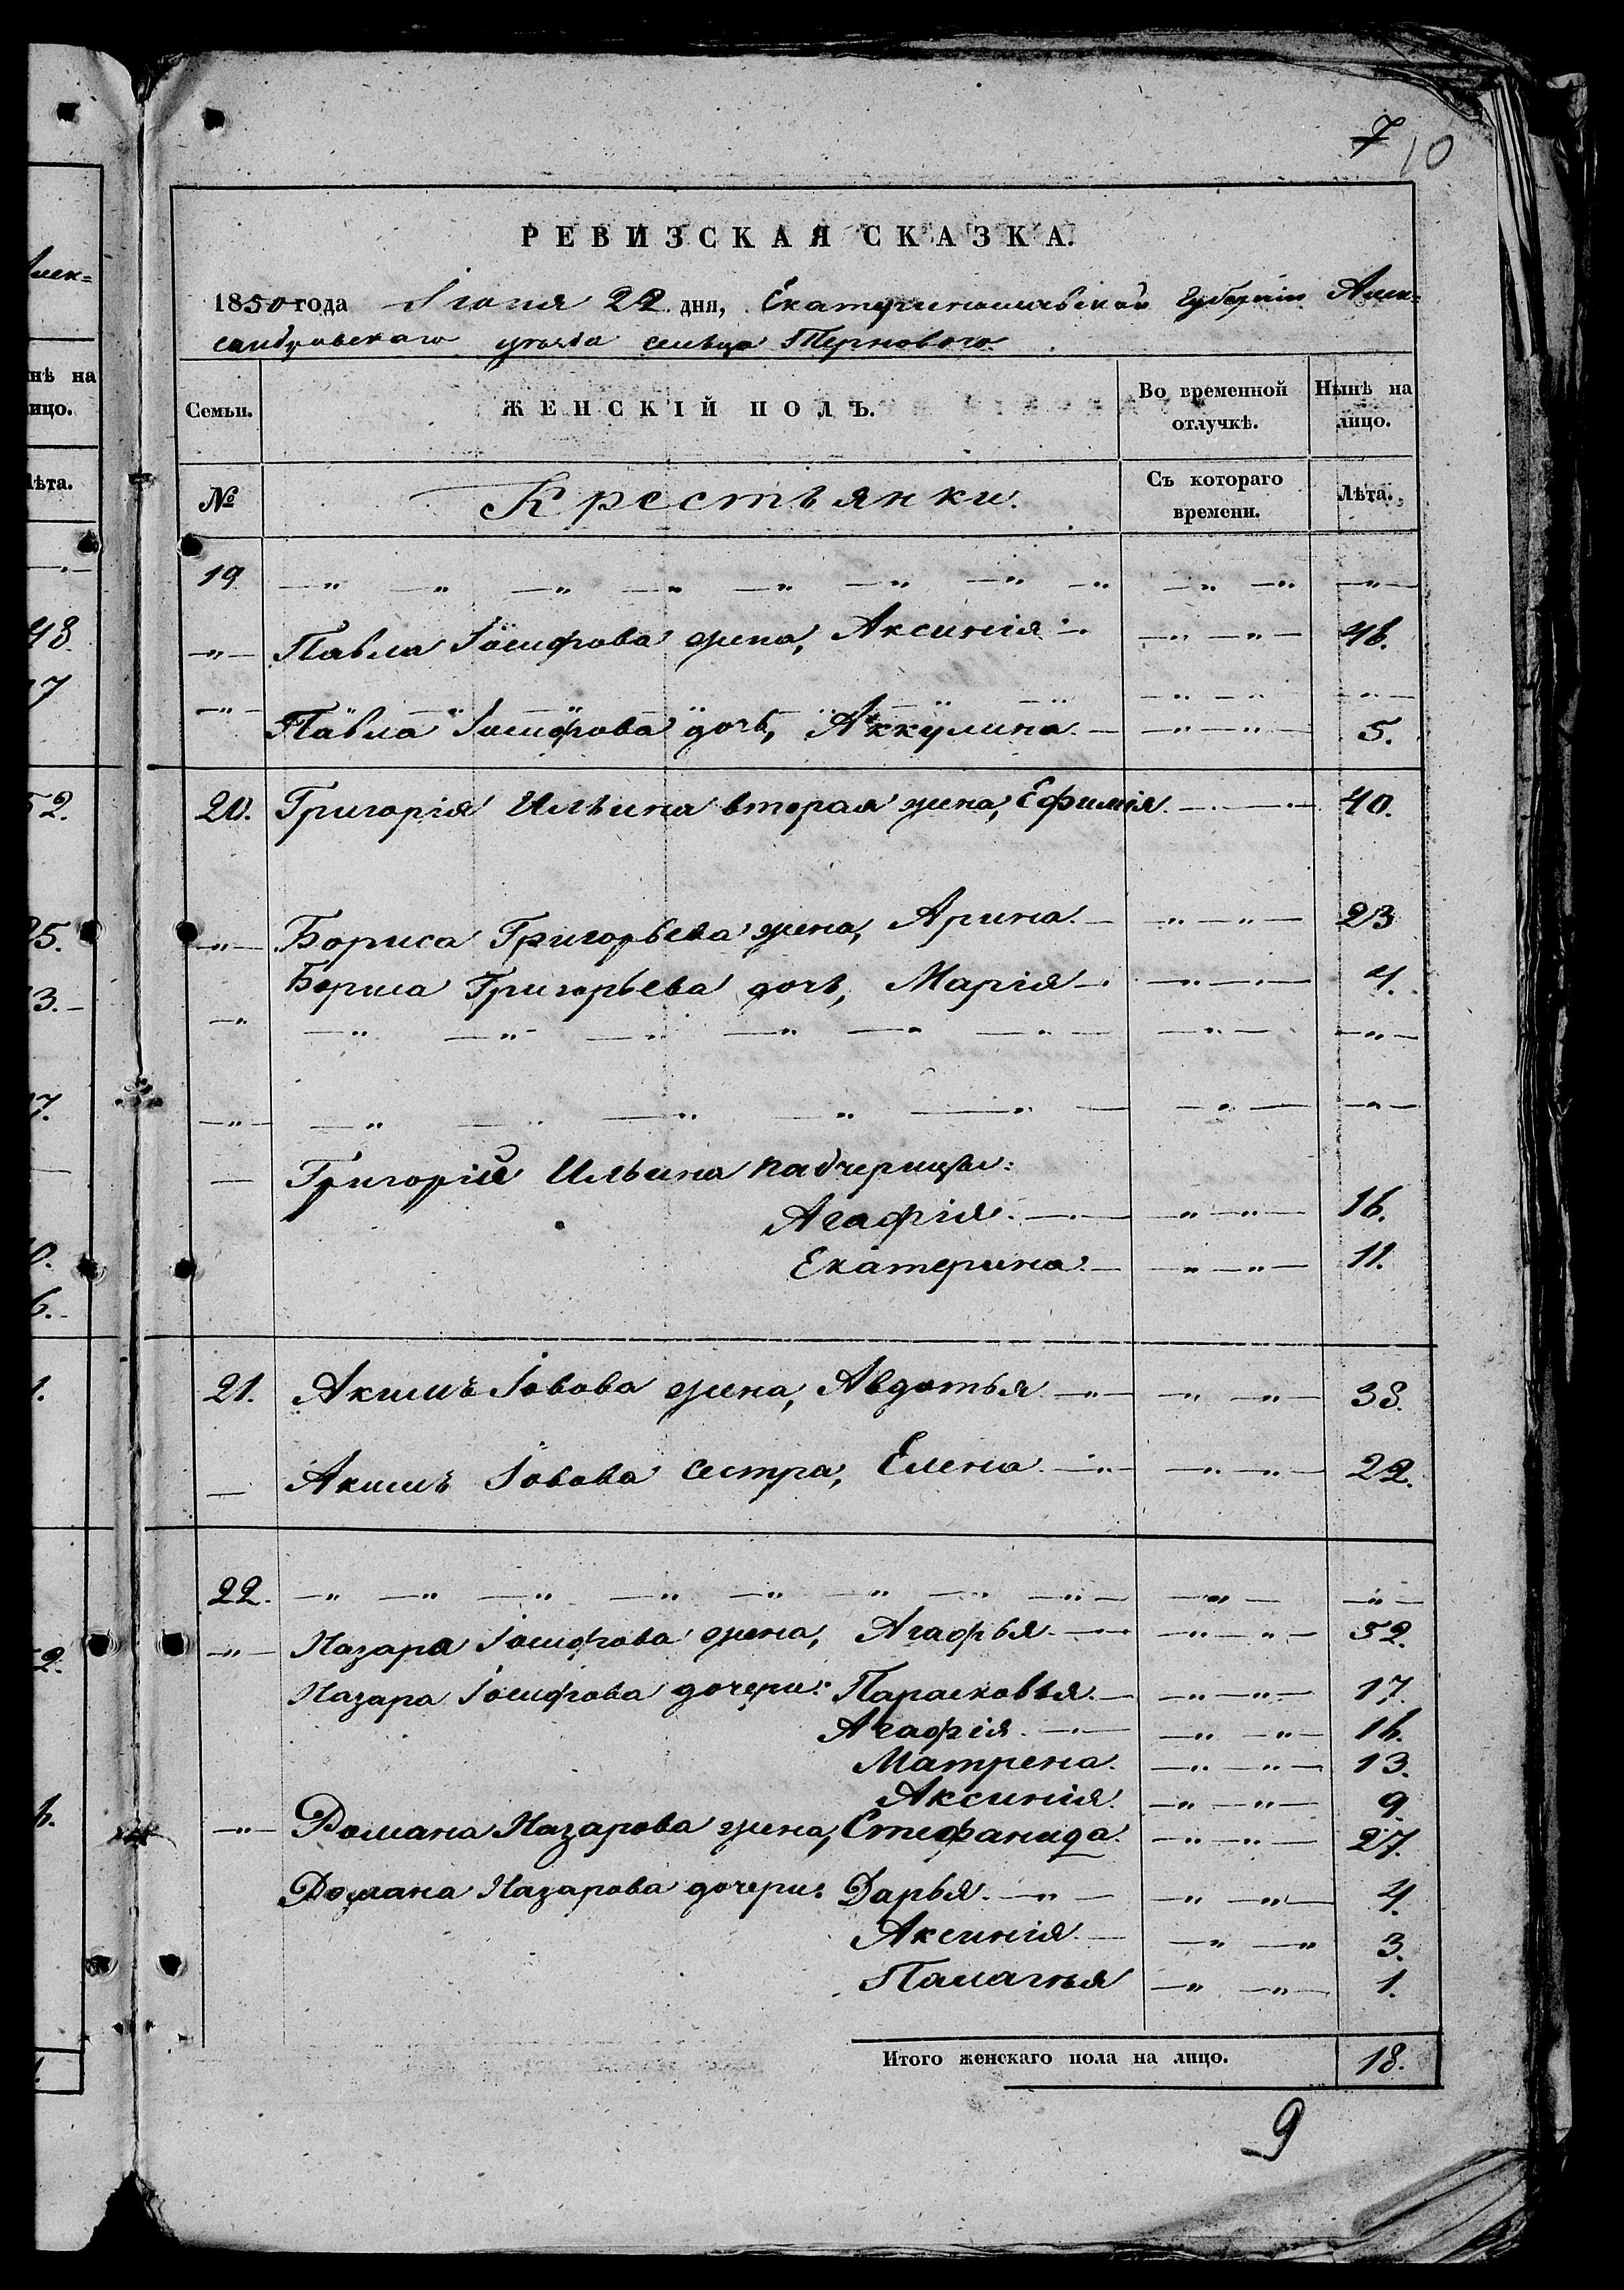 7 10
РЕВИЗСКАЯ СКАЗКА.
1850 года Іюня 22 дня, Екатеринославской Губерніи Алек=
сандровскаго уѣзда сельца Терноваго
Семьи. ЖЕНСКІЙ ПОЛЪ. Во временной отлучкѣ. Нынѣ на лицо.
№ Крестьянки. Съ котораго времени. Лѣта.
19 —„ —„ —„ —„ —„ —„ —„ —„ —„ —„ —„—
—„— Павла Іосифова жена, Аксинія —„ —„— 46.
—„— —„ —„ —„—
Павла Іосифова дочь, Аккулина. — —„ —„— 5.
20. Григорія Ильина вторая жена, Ефимія. — — 40.
—„— Бориса Григорьева жена, Арина. — „ —„— 23
Бориса Григорьева дочь, Марія —„ —„— 4.
—„ —„ —„ —„ —„ —„ —„ —„— —„—
—„— —„ —„ —„ —„ —„ — —„— —„—
— Григорія Ильина падчерицы:
Агафія. —„— „ —„— 16.
Екатерина. — —„ —„— 11.
21. Акима Іовова жена, Авдотья —„— —„ —„— 38.
— Акима Іовова сестра, Елена. —„— —„ —„— 22.
22. —„ —„ —„ —„ —„ —„ —„ —„— —„— —„—
—„— Назара Іосифова жена, Агафья. —„ —„ —„— 52.
Назара Іосифова дочери: Парасковья. — —„ —„— 17.
Агафія. —„— —„ —„— 16.
Матрена. —„ —„— 13.
Аксинія. —„ —„— 9.
—„— Романа Назарова жена, Стефанида. —„ —„— 27.
Романа Назарова дочери: Дарья. —„ — —„ —„— 4.
Аксинія. — —„ —„ 3.
Палагья —„ —„— 1.
Итого женскаго пола на лицо. 18.
9
лек=
нѣ на
ицо.
ѣта.
48.
17
52.
25.
13.
7.
0.
6.
1.
52.
6.